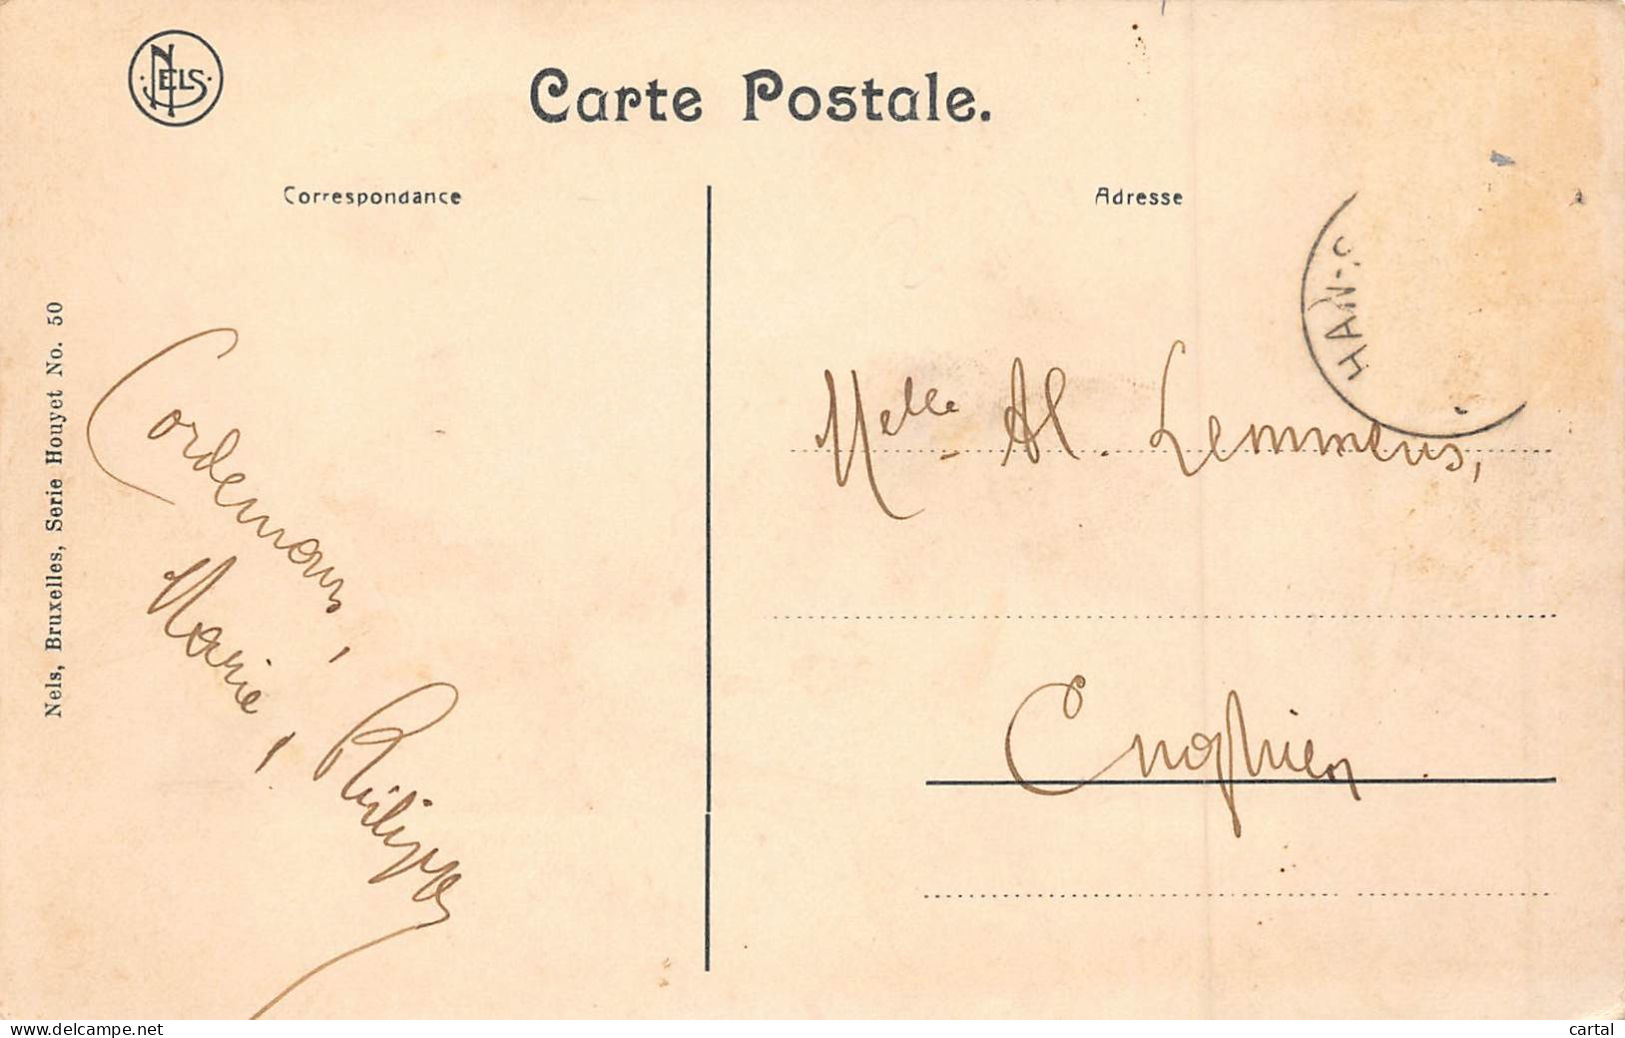 NELS
Carte Postale.
Correspondance
Adresse
HAN-S
Nels, Bruxelles, Serie Houyet No. 50
Melle Al. Lemmens,
Enghien
Marie,
Philippe
www.delcampe.net
cartal